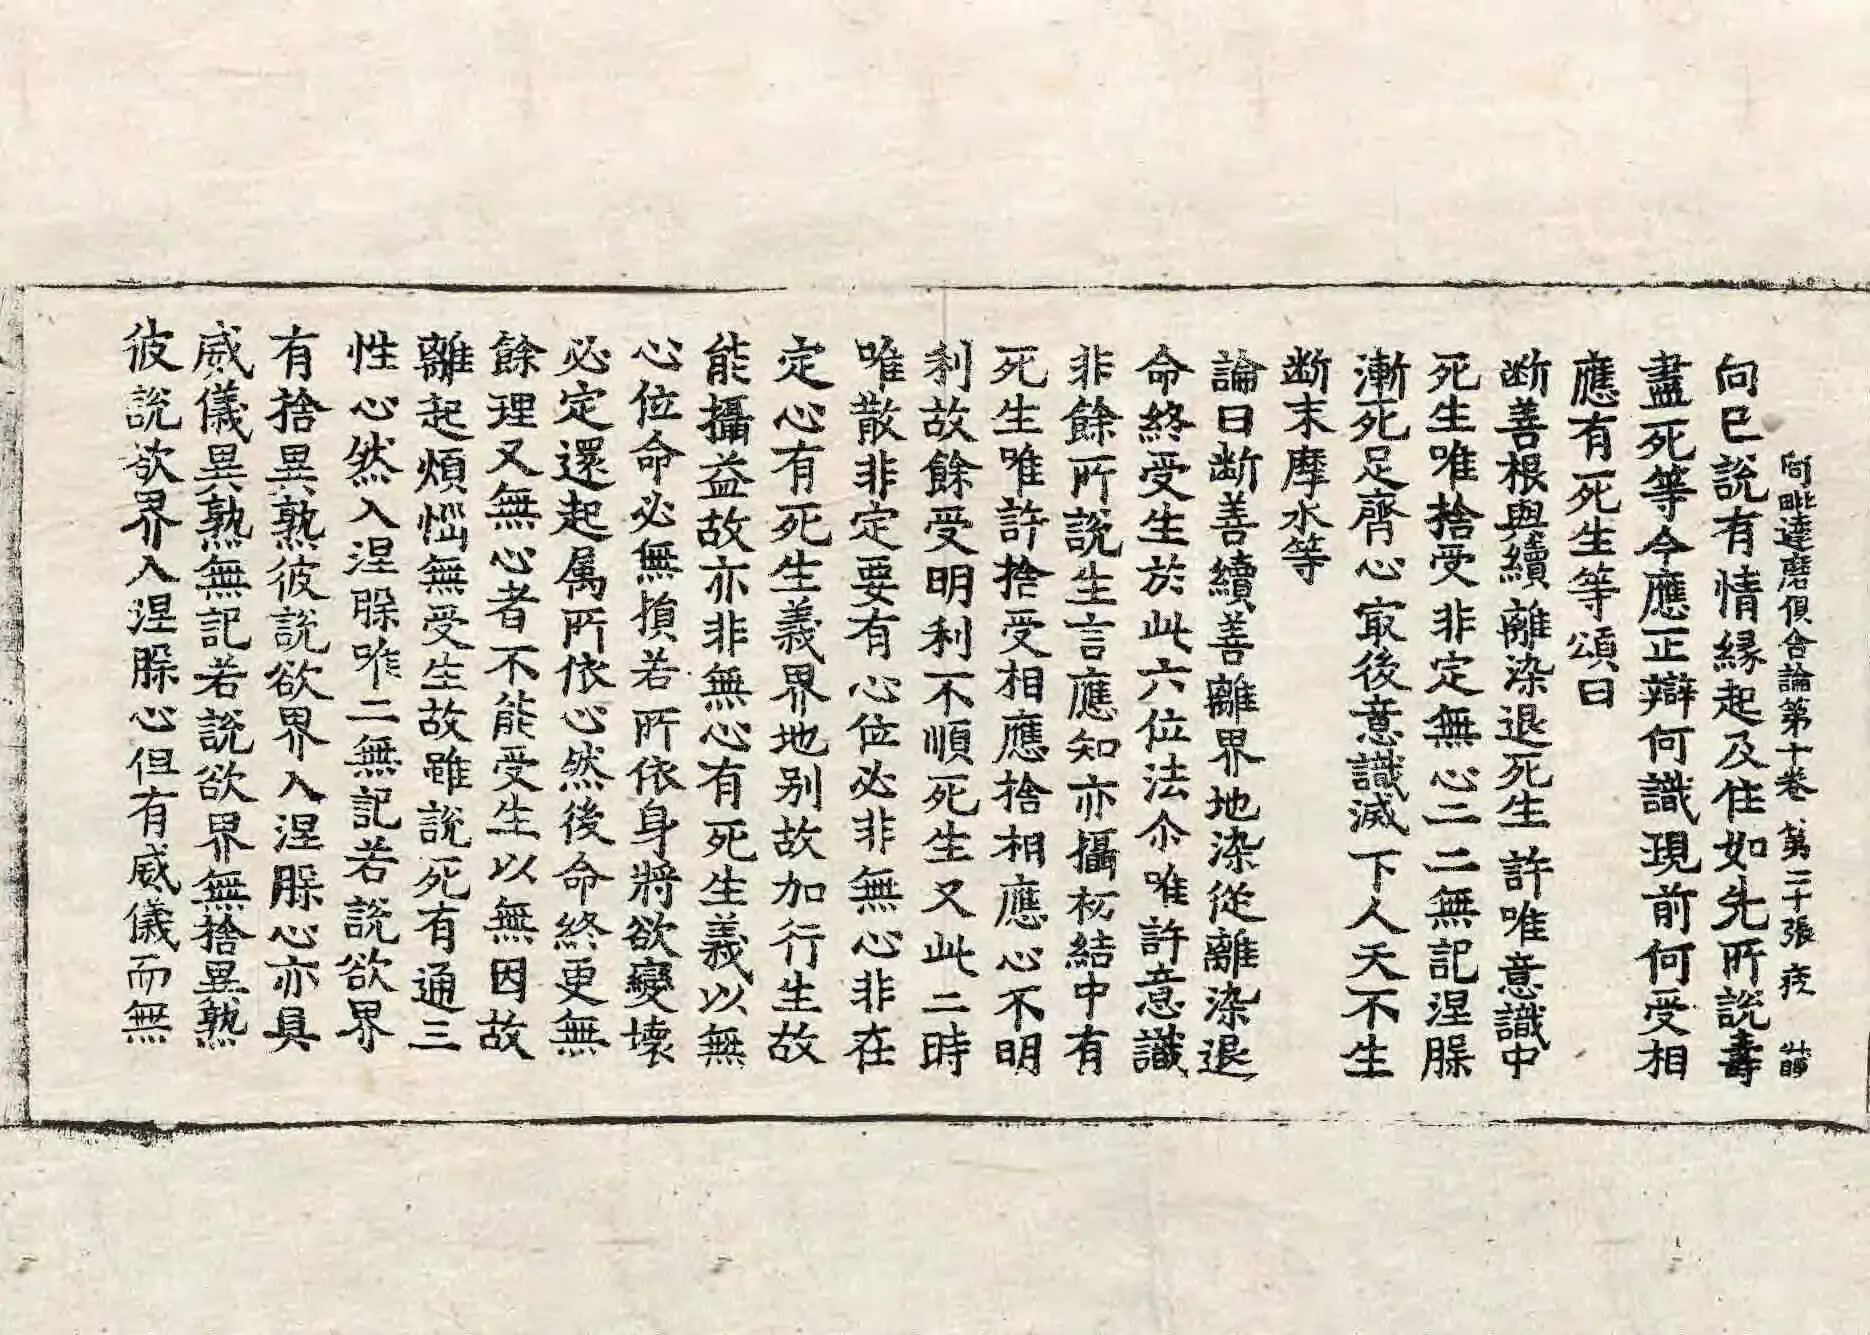 阿毗達磨俱舍論第十卷 第二十張 疲
向已說有情緣起及住如先所說壽
盡死等今應正辯何識現前何受相
應有死生等頌曰
断善根與續 離染退死生 許唯意識中
死生唯捨受 非定無心二 二無記涅槃
漸死足齊心 㝡後意識滅 下人天不生
断末摩水等
論曰断善續善離界地染從離染退
命終受生於此六位法尒唯許意識
非餘所說生言應知亦攝初結中有
死生唯許捨受相應捨相應心不明
利故餘受明利不順死生又此二時
唯散非定要有心位必非無心非在
定心有死生義界地别故加行生故
能攝益故亦非無心有死生義以無
心位命必無損若所依身將欲變壞
必定還起属所依心然後命終更無
餘理又無心者不能受生以無因故
離起煩惱無受生故雖說死有通三
性心然入涅槃唯二無記若說欲界
有捨異熟彼說欲界入涅槃心亦具
威儀異熟無記若說欲界無捨異熟
彼說欲界入涅槃心但有威儀而無